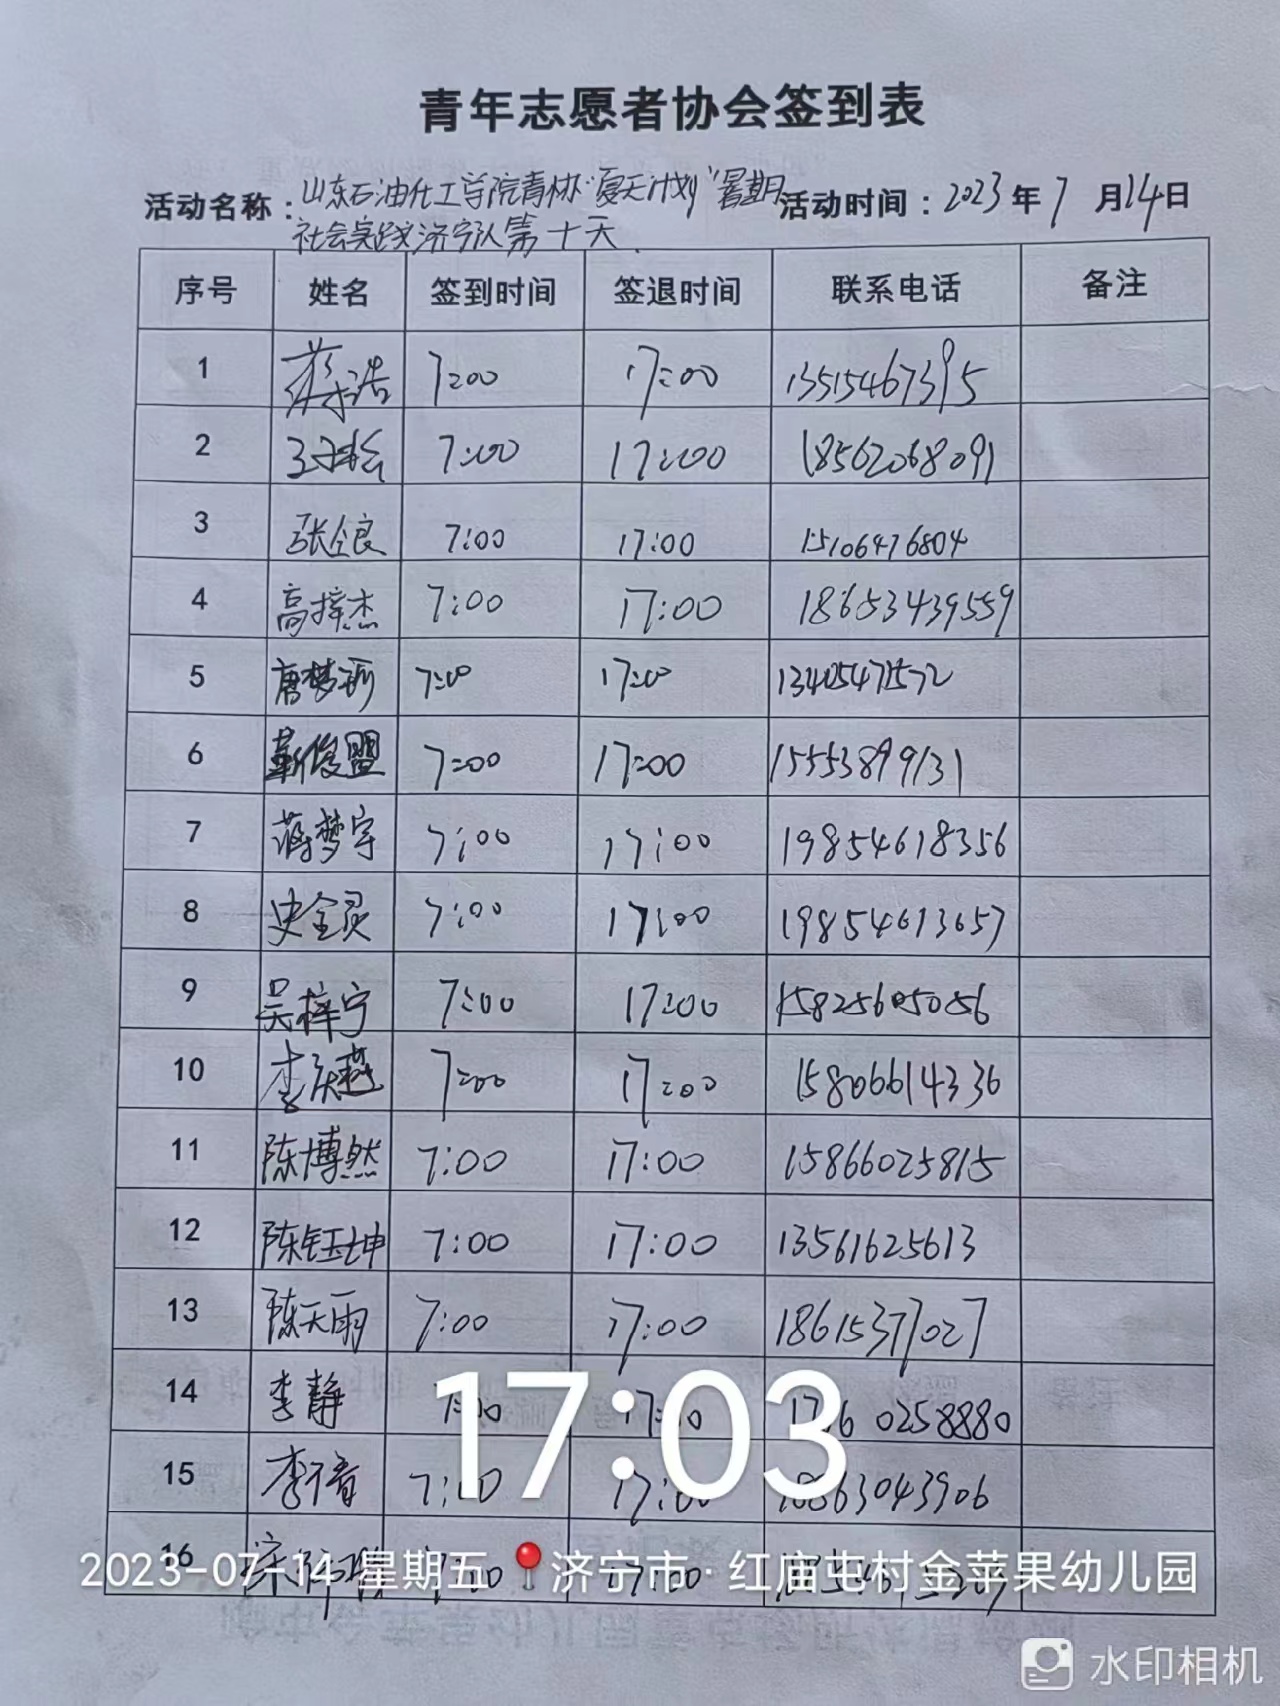 青年志愿者协会签到表
活动名称：山东石油化工学院青协“夏天计划”暑期 活动时间：2023年7月14日
社会实践济宁队第十天
序号 姓名 签到时间 签退时间 联系电话 备注
1 7:00 17:00 13515467395
2 7:00 17:00 18562068091
3 张全良 7:00 17:00 15106476804
4 高梓杰 7:00 17:00 18653439559
5 唐梦 7:00 17:00
6 靳俊盟 7:00 17:00 15553899131
7 蒋梦宇 7:00 17:00 19854618356
8 史全灵 7:00 17:00 19854613657
9 吴梓宁 7:00 17:00 15825605056
10 李庆燕 7:00 17:00 15806614336
11 陈博然 7:00 17:00 15866025815
12 陈钰坤 7:00 17:00 13561625613
13 陈天雨 7:00 17:00 18615377027
14 李静 0258880
15 李 7:00 17:00 63043906
16 17:00
17:03
2023-07-14 星期五 济宁市·红庙屯村金苹果幼儿园
水印相机